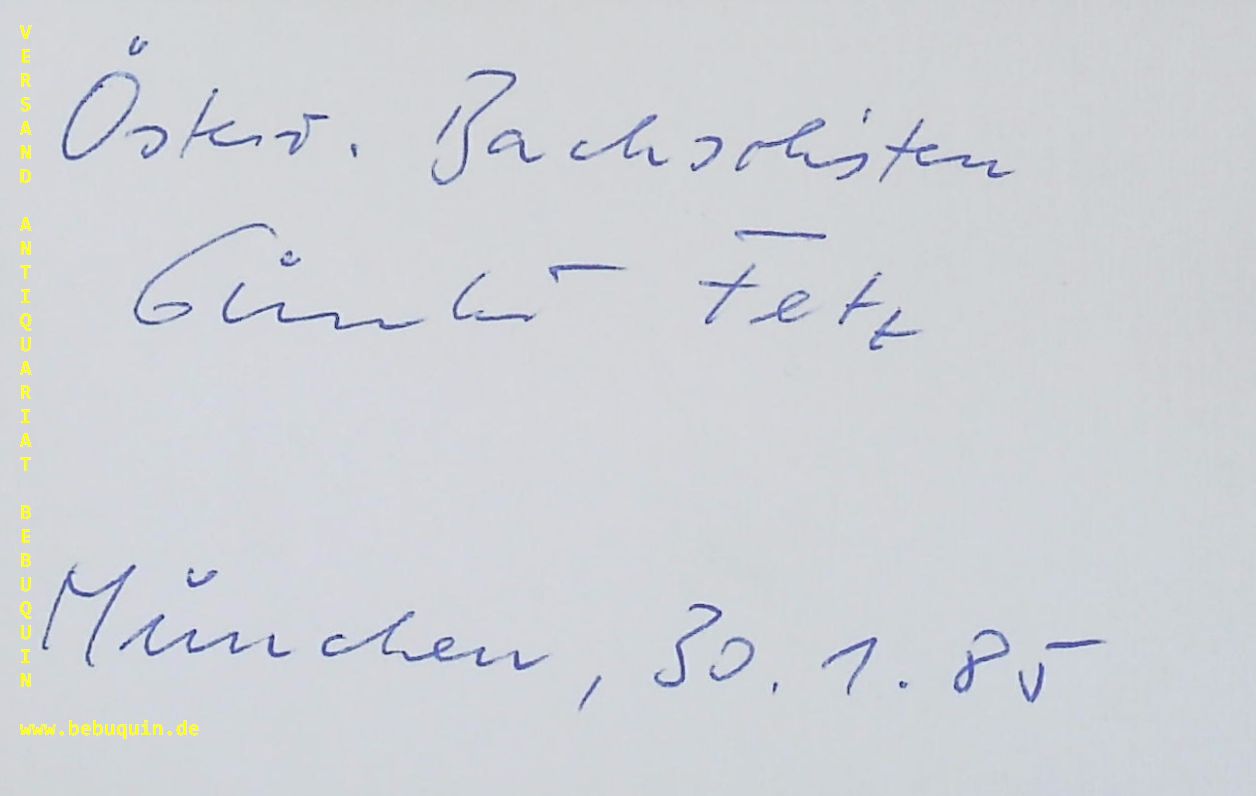 Österr. Bachsolisten
Günter Fetz
München, 30.1.85
VERSAND ANTIQUARIAT BEBUQUIN
www.bebuquin.de